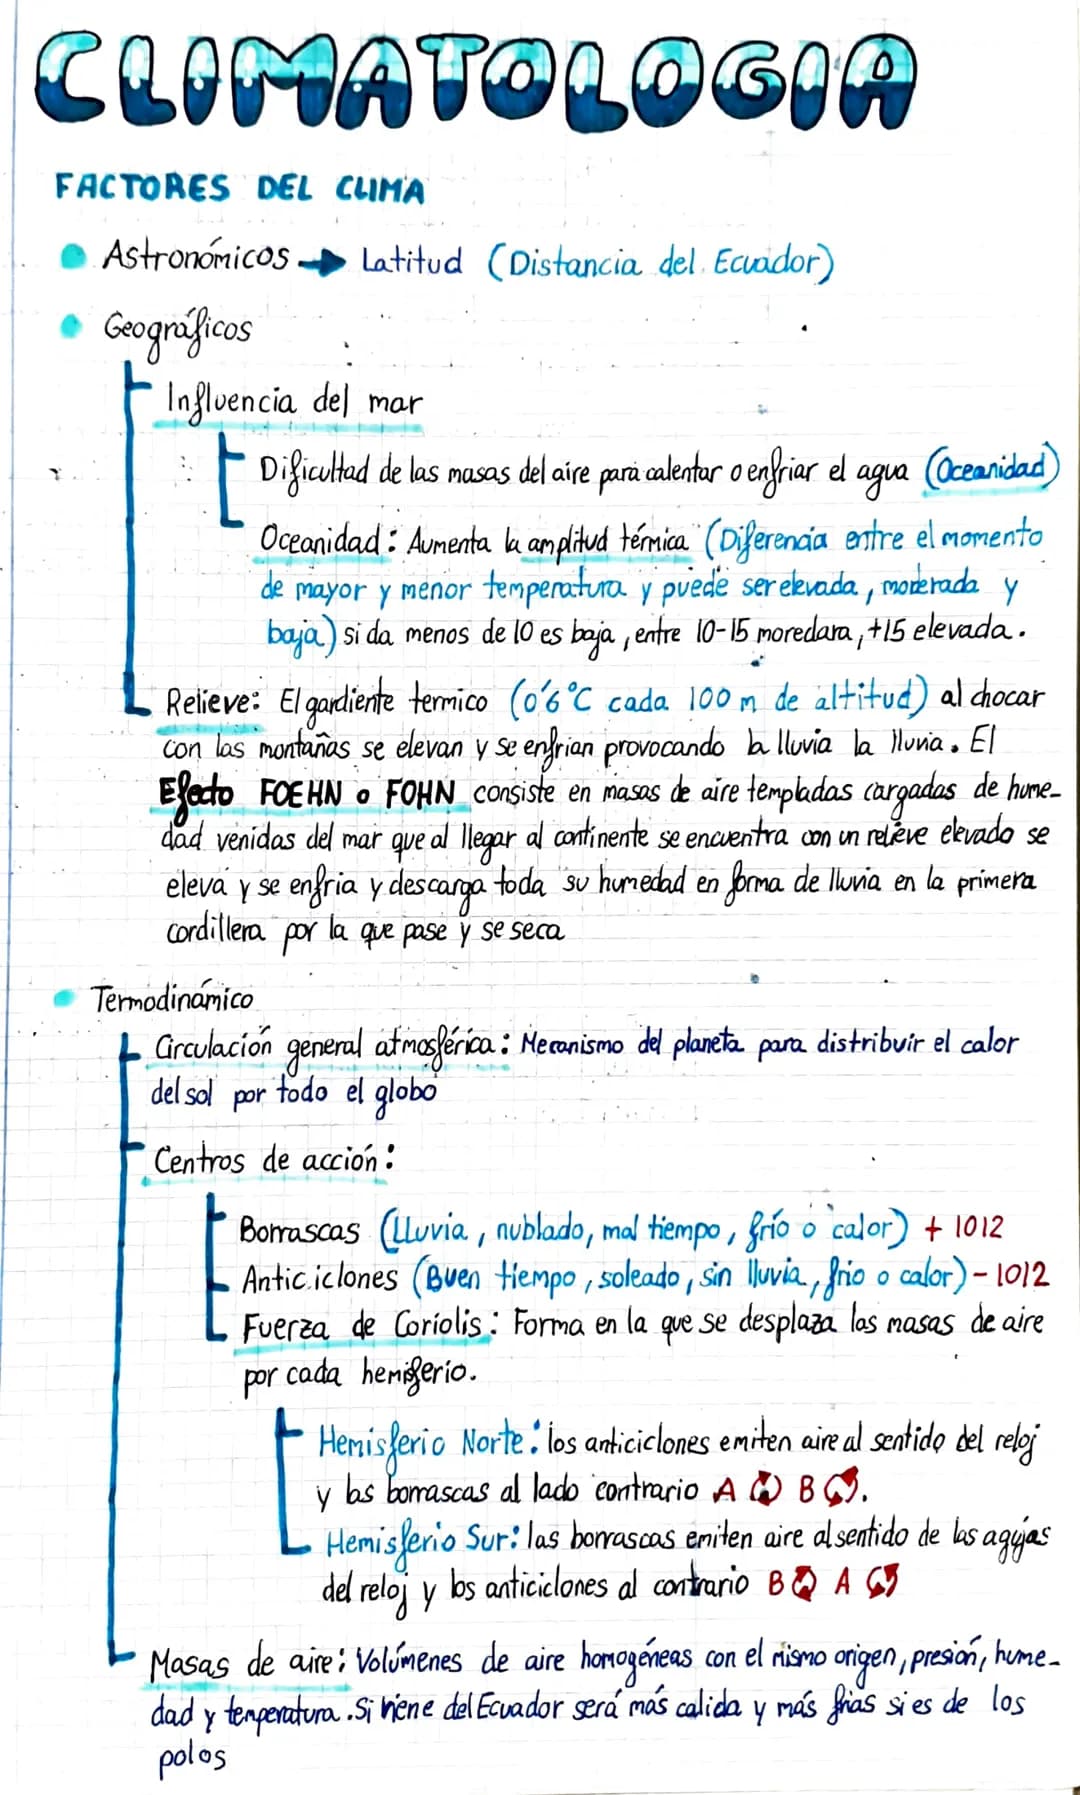 CLIMATOLOGIA
FACTORES DEL CLIMA
Astronómicos → Latitud (Distancia del Ecuador)
Geográficos
Influencia del mar
Dificultad de las masas del aire para calentar o enfriar el agua (Oceanidad)
Oceanidad: Aumenta la amplitud térmica (Diferencia entre el momento
de mayor y menor temperatura y puede ser elevada, moderada y
baja) si da menos de 10 es baja, entre 10-15 moredara, +15 elevada.
Relieve: El gardiente termico (0'6°C cada 100 m de altitud) al chocar
con las montañas se elevan y se enfrian provocando la lluvia la lluvia. El
Efecto FOEHN o FOHN consiste en masas de aire templadas cargadas de hume-
dad venidas del mar que al llegar al continente se encuentra con un relieve elevado se
eleva y se enfria y descarga toda su humedad en forma de lluvia en la primera
cordillera por la que pase y se seca
Termodinámico
Circulación general atmosférica: Mecanismo del planeta para distribuir el calor
del sol por todo el globo
Centros de acción:
Borrascas (Lluvia, nublado, mal tiempo, frío o calor) + 1012
Anticiclones (Buen tiempo, soleado, sin lluvia, frio o calor) - 1012
Fuerza de Coriolis: Forma en la que se desplaza las masas de aire
por cada hemisferio.
Hemisferio Norte: los anticiclones emiten aire al sentido del reloj
y las borrascas al lado contrario A B.
Hemisferio Sur: las borrascas emiten aire al sentido de las agujas
del reloj y los anticiclones al contrario B A
Masas de aire: Volúmenes de aire homogéneas con el mismo origen, presión, hume-
dad y temperatura. Si viene del Ecuador será más calida y más frias si es de los
polos